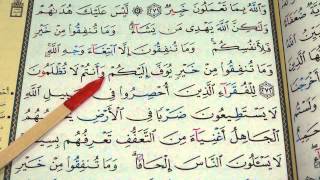 وَاللَّهُ بِمَا تَعْمَلُونَ خَبِيرٌ ٢٧١ لَيْسَ عَلَيْكَ هُدَىٰهُمْ
وَلَٰكِنَّ اللَّهَ يَهْدِى مَن يَشَآءُ وَمَا تُنفِقُوا۟ مِنْ خَيْرٍ
فَلِأَنفُسِكُمْ وَمَا تُنفِقُونَ إِلَّا ٱبْتِغَآءَ وَجْهِ ٱللَّهِ
وَمَا تُنفِقُوا۟ مِنْ خَيْرٍ يُوَفَّ إِلَيْكُمْ وَأَنتُمْ لَا تُظْلَمُونَ
٢٧٢ لِلْفُقَرَآءِ ٱلَّذِينَ أُحْصِرُوا۟ فِى سَبِيلِ ٱللَّهِ
لَا يَسْتَطِيعُونَ ضَرْبًا فِى ٱلْأَرْضِ يَحْسَبُهُمُ
ٱلْجَاهِلُ أَغْنِيَآءَ مِنَ ٱلتَّعَفُّفِ تَعْرِفُهُم بِسِيمَٰهُمْ
لَا يَسْـَٔلُونَ ٱلنَّاسَ إِلْحَافًا وَمَا تُنفِقُوا۟ مِنْ خَيْرٍ